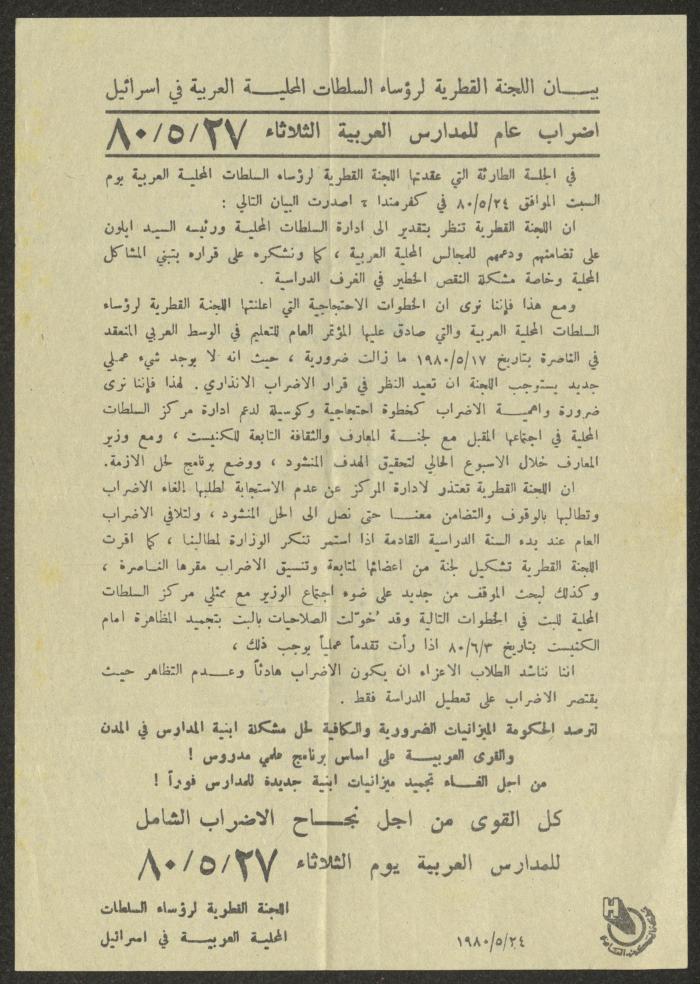 بيان اللجنة القطرية لرؤساء السلطات المحلية العربية في اسرائيل
اضراب عام للمدارس العربية الثلاثاء ٨٠/٥/٢٧
في الجلسة الطارئة التي عقدتها اللجنة القطرية لرؤساء السلطات المحلية العربية يوم
السبت الموافق ٨٠/٥/٢٤ في كفرمندا ؛ اصدرت البيان التالي :
ان اللجنة القطرية تنظر بتقدير الى ادارة السلطات المحلية ورئيسه السيد ايلون
على تضامنهم ودعمهم للمجالس المحلية العربية ، كما ونشكره على قراره بتبني المشاكل
المحلية وخاصة مشكلة النقص الخطير في الغرف الدراسية .
ومع هذا فإننا نرى ان الخطوات الاحتجاجية التي اعلنتها اللجنة القطرية لرؤساء
السلطات المحلية العربية والتي صادق عليها المؤتمر العام للتعليم في الوسط العربي المنعقد
في الناصرة بتاريخ ١٩٨٠/٥/١٧ ما زالت ضرورية ، حيث انه لا يوجد شيء عملي
جديد يستوجب اللجنة ان تعيد النظر في قرار الاضراب الانذاري . لهذا فإننا نرى
ضرورة واهمية الاضراب كخطوة احتجاجية وكوسيلة لدعم ادارة مركز السلطات
المحلية في اجتماعها المقبل مع لجنة المعارف والثقافة التابعة للكنيست ، ومع وزير
المعارف خلال الاسبوع الحالي لتحقيق الهدف المنشود ، ووضع برنامج لحل الازمة.
ان اللجنة القطرية تعتذر لادارة المركز عن عدم الاستجابة لطلبها إلغاء الاضراب
وتطالبها بالوقوف والتضامن معنا حتى نصل الى الحل المنشود ، ولتلافي الاضراب
العام عند بدء السنة الدراسية القادمة اذا استمر تنكر الوزارة لمطالبنا ، كما اقرت
اللجنة القطرية تشكيل لجنة من اعضائها لمتابعة وتنسيق الاضراب مقرها الناصرة ،
وكذلك لبحث الموقف من جديد على ضوء اجتماع الوزير مع ممثلي مركز السلطات
المحلية للبت في الخطوات التالية وقد خُوّلت الصلاحيات بالبت بتجميد المظاهرة امام
الكنيست بتاريخ ٨٠/٦/٣ اذا رأت تقدماً عملياً يوجب ذلك ،
اننا نناشد الطلاب الاعزاء ان يكون الاضراب هادئاً وعدم التظاهر حيث
يقتصر الاضراب على تعطيل الدراسة فقط .
لترصد الحكومة الميزانيات الضرورية والكافية لحل مشكلة ابنية المدارس في المدن
والقرى العربية على اساس برنامج علمي مدروس !
من اجل الغاء تجميد ميزانيات ابنية جديدة للمدارس فوراً !
كل القوى من اجل نجاح الاضراب الشامل
للمدارس العربية يوم الثلاثاء ٨٠/٥/٢٧
اللجنة القطرية لرؤساء السلطات
المحلية العربية في اسرائيل
١٩٨٠/٥/٢٤
H